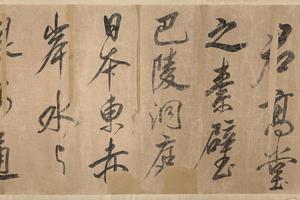 君高堂
之素壁
巴陵洞庭
日本東赤
岸水与
通